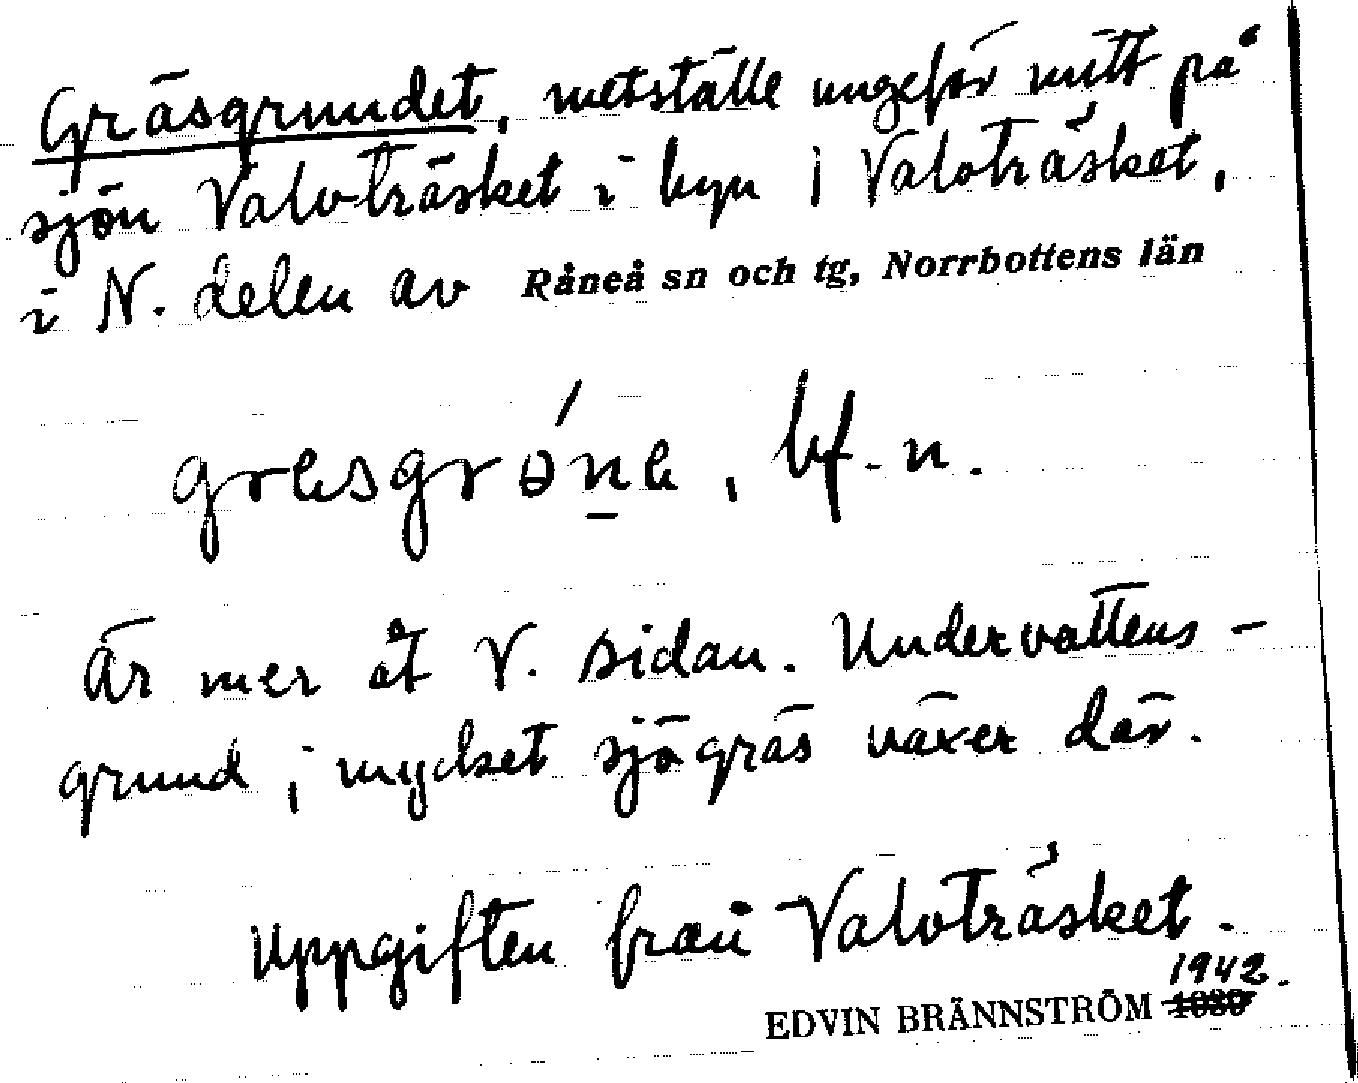 Gräsgrundet, metställe ungefär mitt på
sjön Valvträsket i byn i Valvträsket,
i N. delen av Råneå sn och tg, Norrbottens län
bf. n.
Är mer åt V. sidan. Undervattens-
grund; mycket sjögräs växer där.
Uppgiften från Valvträsket.
1942.
EDVIN BRÄNNSTRÖM